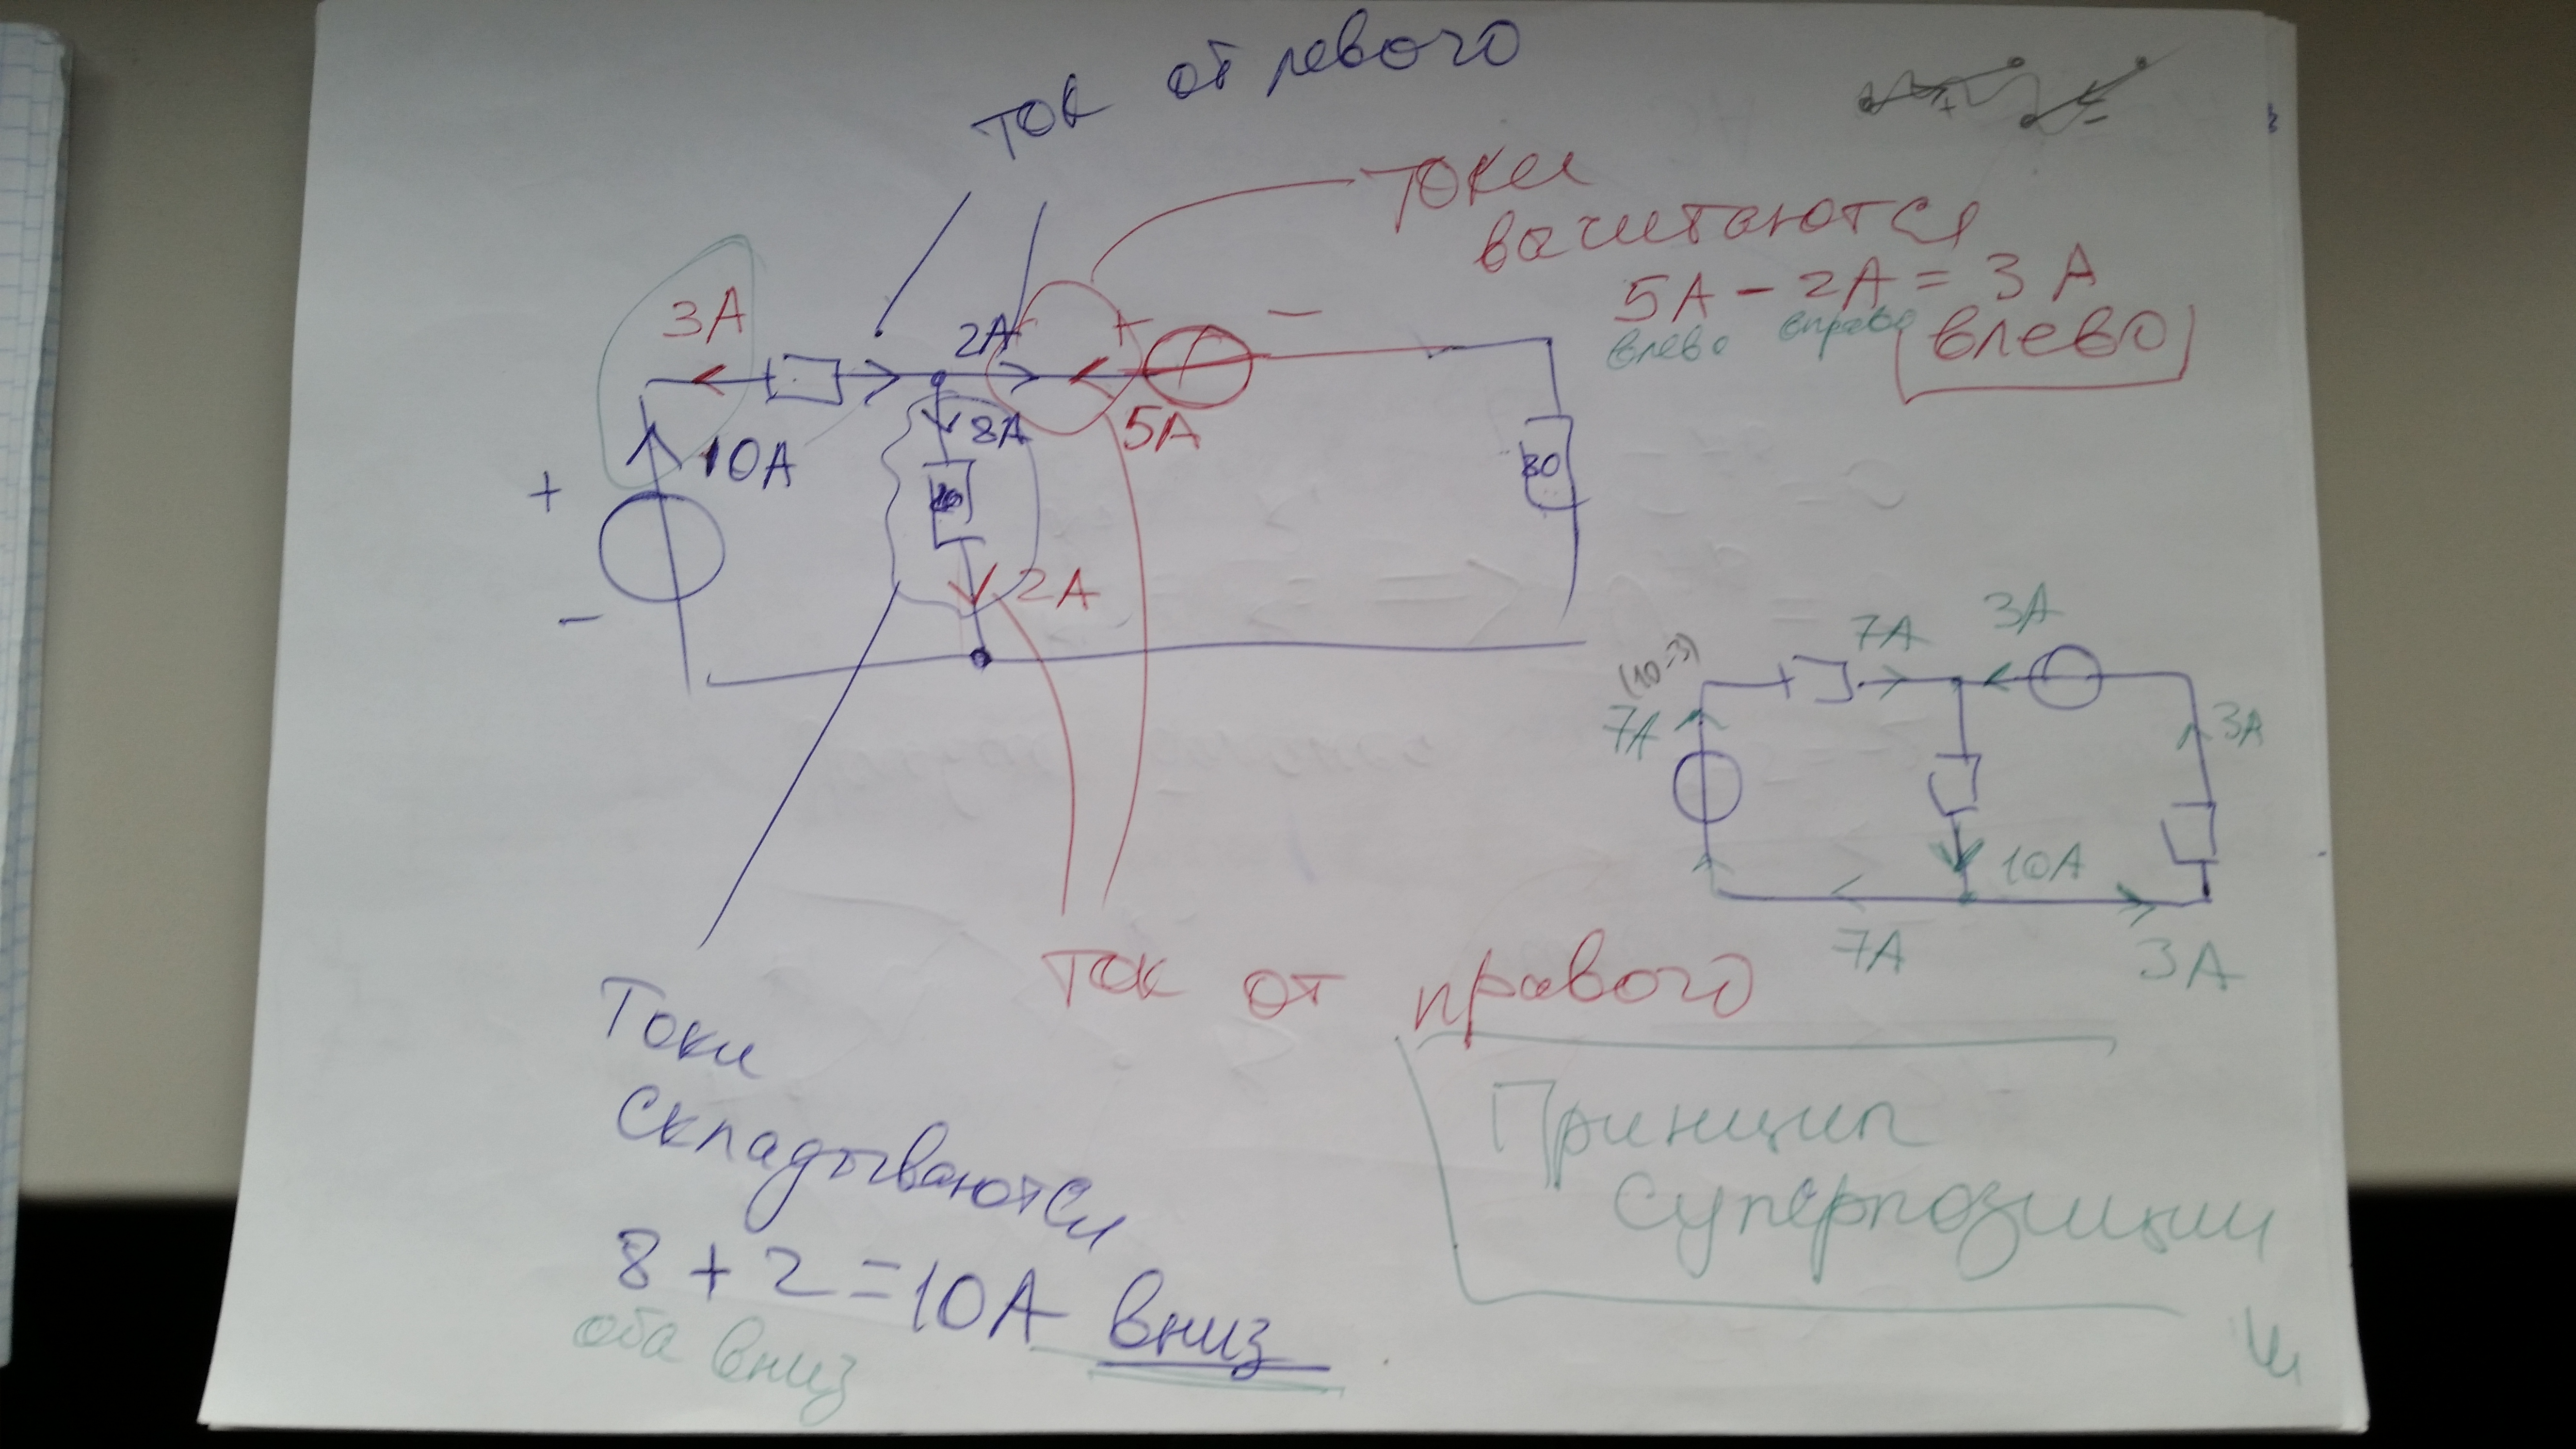 ток от левого
токи
вычитаются
5А - 2А = 3А
влево вправо
влево
3А
2А
+ −
10А
8А
5А
30
+
2А
−
(10-3)
7А
3А
7А
3А
10А
7А
3А
ток от правого
Токи
складываются
8 + 2 = 10А вниз
оба вниз
Принцип
суперпозиции